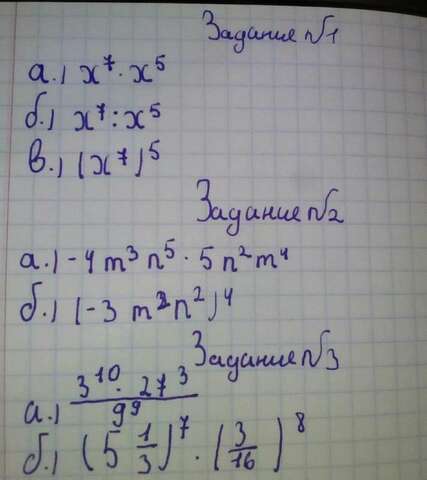 Задание №1
а.) x⁷ · x⁵
б.) x⁷ : x⁵
в.) (x⁷)⁵
Задание №2
а.) -4 m³ n⁵ · 5 n² m⁴
б.) (-3 m² n²)⁴
Задание №3
а.) 3¹⁰ · 27³ / 9⁹
б.) (5 1/3)⁷ · (3/16)⁸